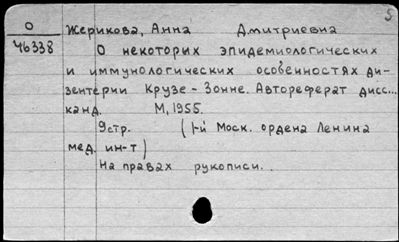 5
О
46338
Жерикова, Анна Дмитриевна
О некоторых эпидемиологических
и иммунологических особенностях ди-
зентерии Крузе - Зонне. Автореферат дисс...
канд. М, 1955.
9стр. (1-й Моск. ордена Ленина
мед. ин-т)
На правах рукописи.